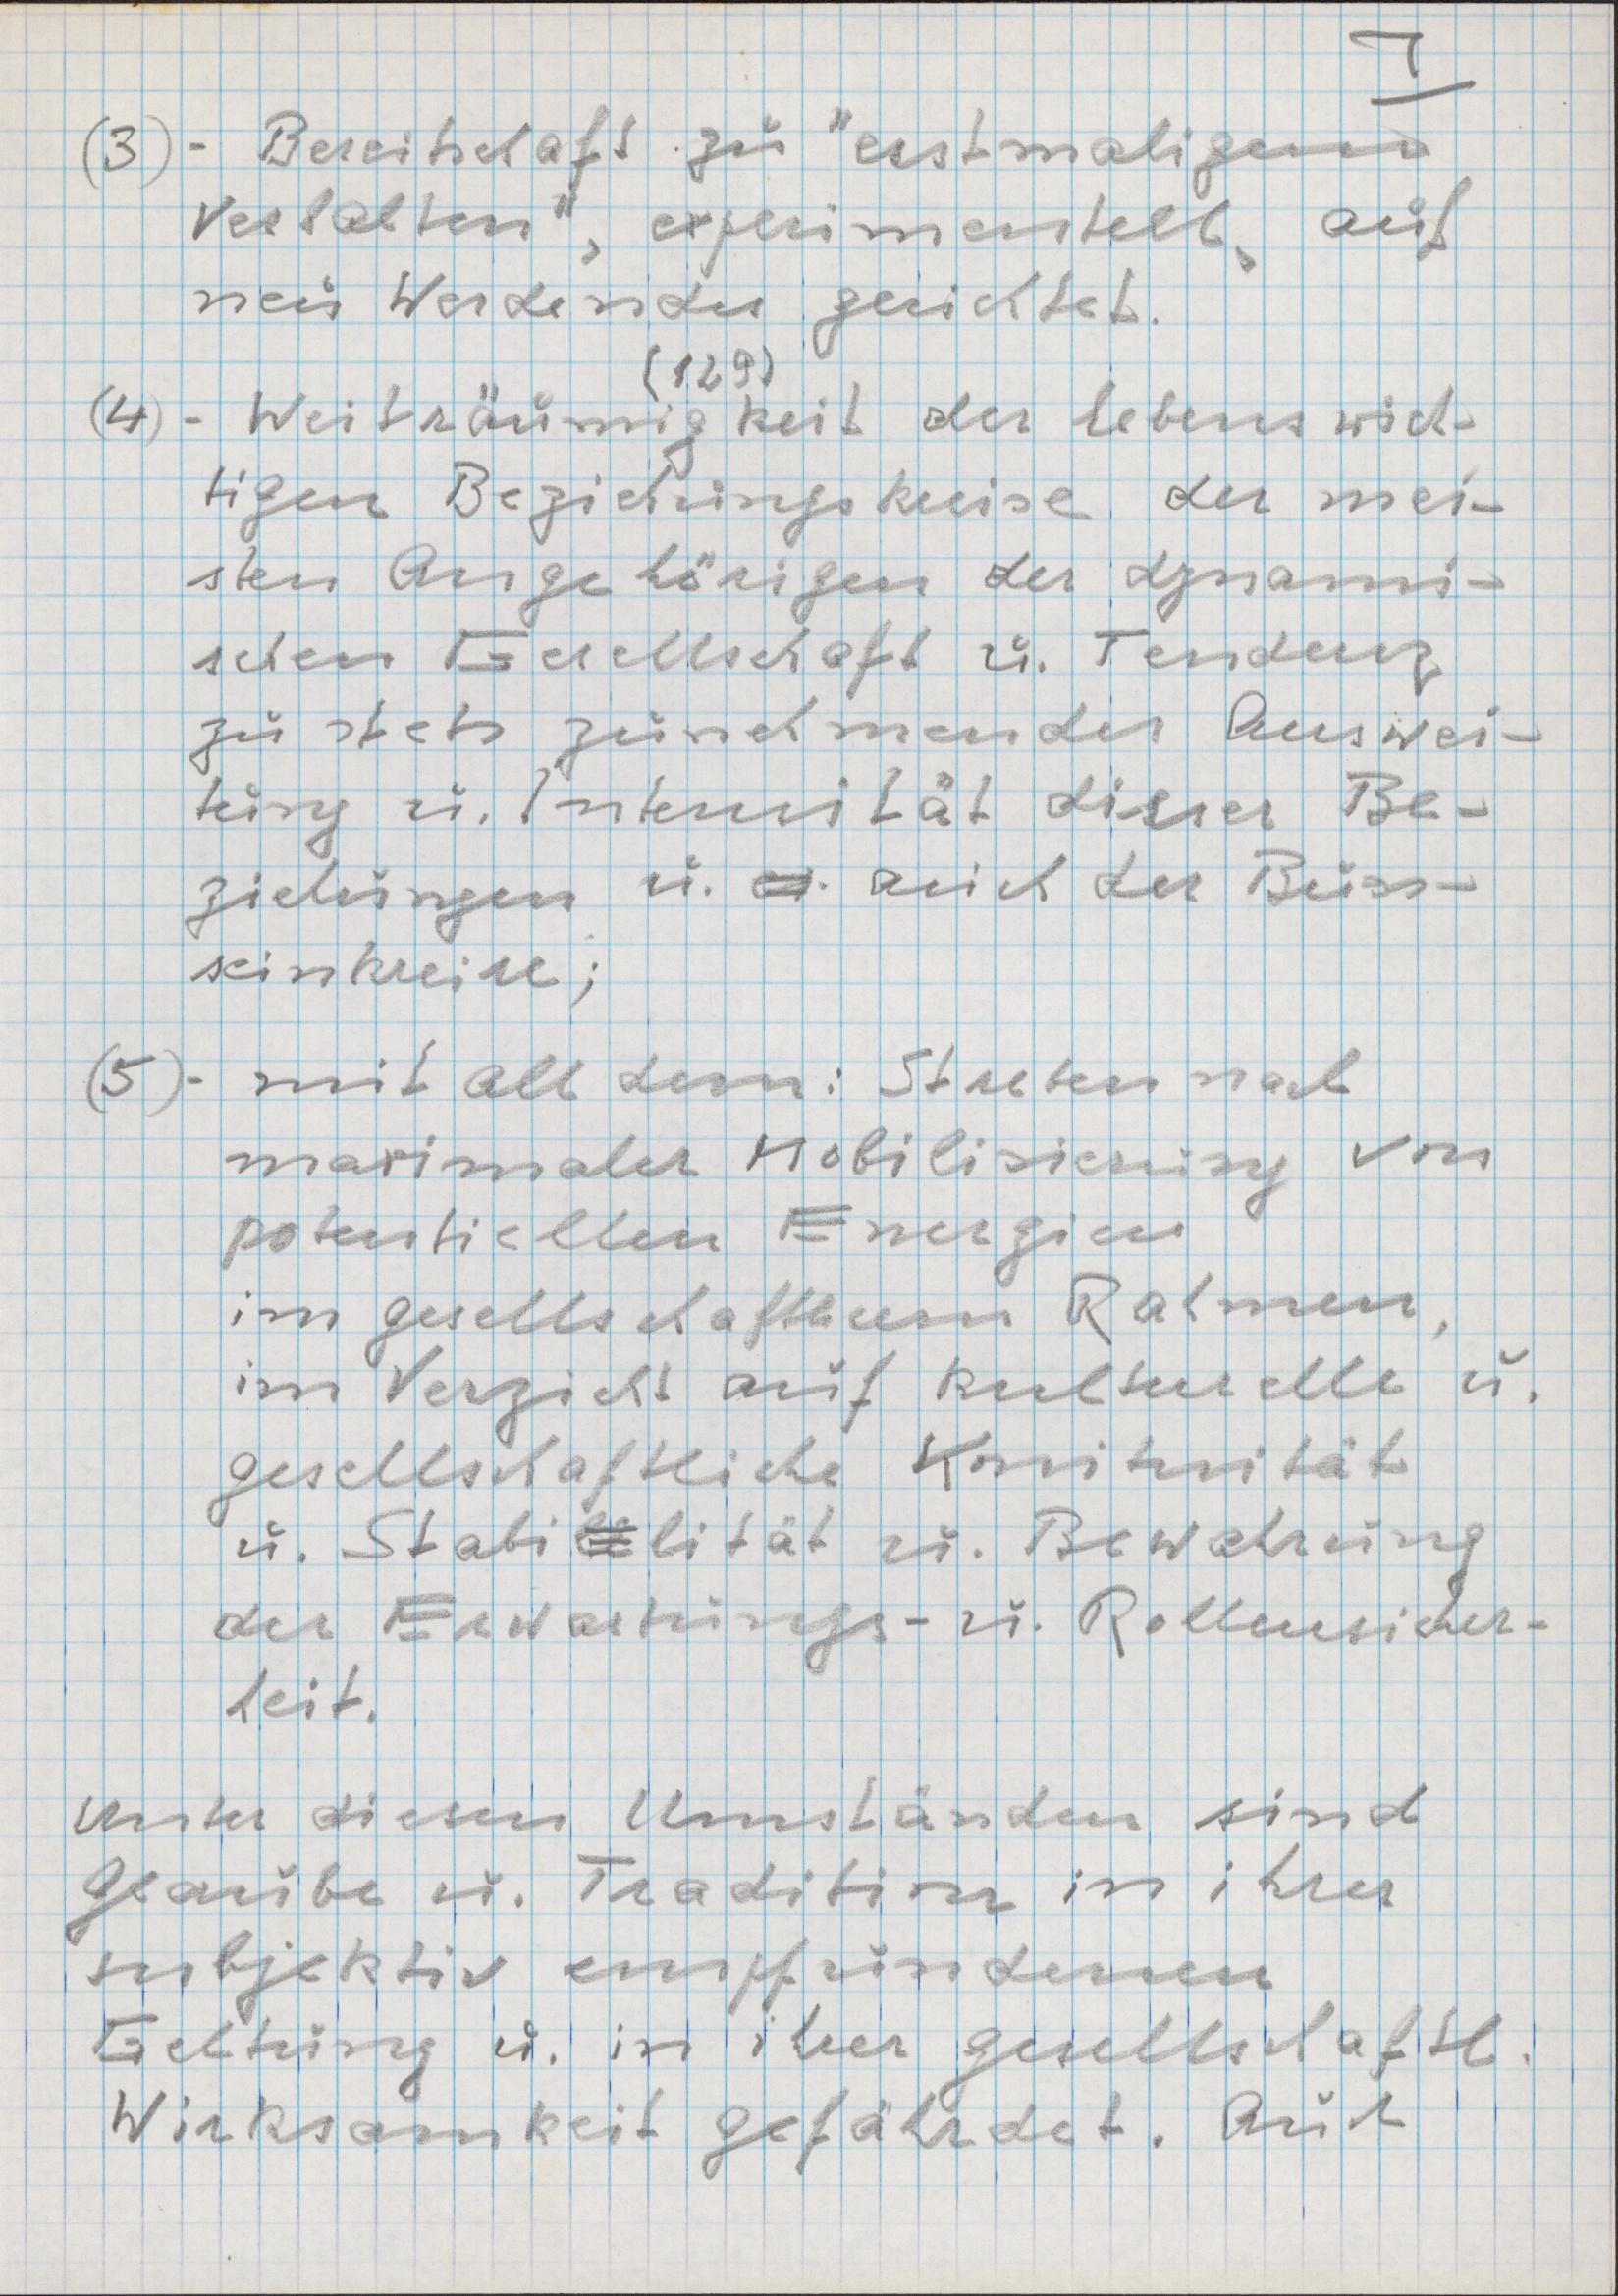 7
(3) - Bereitschaft zu "erstmaligem
Verhalten", experimentell, auf
neu Werdendes gerichtet.
(129)
(4) - Weiträumigkeit der lebenswich-
tigen Beziehungskreise der mei-
sten Angehörigen der dynami-
schen Gesellschaft u. Tendenz
zu stets zunehmender Auswei-
tung u. Intensität dieser Be-
ziehungen u. auch der
seinkreise;
(5) - mit all dem: Streben nach
maximaler Mobilisierung von
potentiellen Energien
im gesellschaftlichen Rahmen,
im Verzicht auf kulturelle u.
gesellschaftliche Kontinuität
u. Stabilität u. Bewahrung
der Erwartungs- u. Rollensicher-
heit.
Unter diesen Umständen sind
Glaube u. Tradition in ihrer
subjektiv empfundenen
Geltung u. in ihrer gesellschaftl.
Wirksamkeit gefährdet. Auch